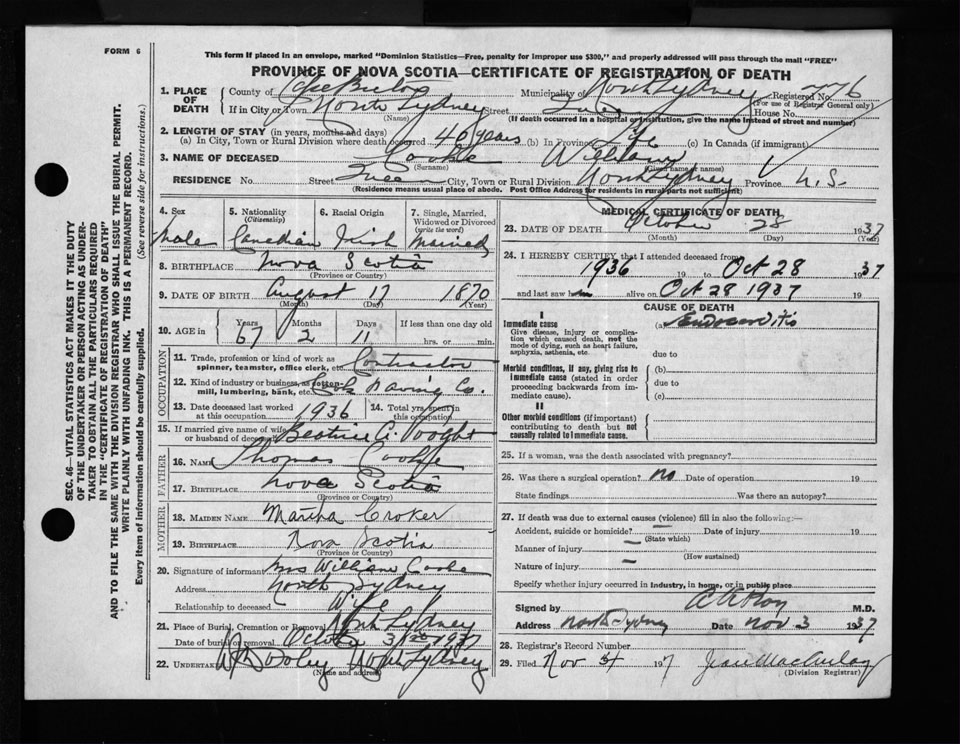 FORM 6
This form if placed in an envelope, marked "Dominion Statistics—Free, penalty for improper use $300," and properly addressed will pass through the mail "FREE"
PROVINCE OF NOVA SCOTIA—CERTIFICATE OF REGISTRATION OF DEATH
1. PLACE OF DEATH
County of Cape Breton Municipality of North Sydney Registered No. 76
(For use of Registrar General only)
If in City or Town North Sydney Street Queen House No.
(Name) (If death occurred in a hospital or institution, give the name instead of street and number)
2. LENGTH OF STAY (in years, months and days)
(a) In City, Town or Rural Division where death occurred 40 years (b) In Province Life (c) In Canada (if immigrant)
3. NAME OF DECEASED Cooke William
(Surname) (Given name or names)
RESIDENCE No. Street Queen City, Town or Rural Division North Sydney Province N.S.
(Residence means usual place of abode. Post Office Address for residents in rural parts not sufficient)
4. Sex 5. Nationality (Citizenship) 6. Racial Origin 7. Single, Married, Widowed or Divorced (write the word)
Male Canadian Irish Married
8. BIRTHPLACE Nova Scotia
(Province or Country)
9. DATE OF BIRTH August 17 1870
(Month) (Day) (Year)
10. AGE in Years Months Days If less than one day old
67 2 11 hrs. or min.
OCCUPATION
11. Trade, profession or kind of work as spinner, teamster, office clerk, etc. Contractor
12. Kind of industry or business, as cotton-mill, lumbering, bank, etc. Paving Co.
13. Date deceased last worked at this occupation 1936 14. Total yrs. spent in this occupation
15. If married give name of wife or husband of deceased Beatrice A. Vooght
FATHER
16. NAME Thomas Cooke
17. BIRTHPLACE Nova Scotia
(Province or Country)
MOTHER
18. MAIDEN NAME Martha Croker
19. BIRTHPLACE Nova Scotia
(Province or Country)
20. Signature of informant Mrs William Cooke
Address North Sydney
Relationship to deceased Wife
21. Place of Burial, Cremation or Removal North Sydney
Date of burial or removal October 31 1937
22. UNDERTAKER Dooley North Sydney
(Name and address)
MEDICAL CERTIFICATE OF DEATH
23. DATE OF DEATH October 28 1937
(Month) (Day) (Year)
24. I HEREBY CERTIFY that I attended deceased from
1936 19 to Oct 28 1937
and last saw him alive on Oct 28 1937 19
CAUSE OF DEATH
I
Immediate cause (a) Endocarditis
Give disease, injury or complication which caused death, not the mode of dying, such as heart failure, asphyxia, asthenia, etc.
due to
Morbid conditions, if any, giving rise to immediate cause (stated in order proceeding backwards from immediate cause).
(b)
due to
(c)
II
Other morbid conditions (if important) contributing to death but not causally related to immediate cause.
25. If a woman, was the death associated with pregnancy?
26. Was there a surgical operation? No Date of operation 19
State findings Was there an autopsy?
27. If death was due to external causes (violence) fill in also the following:—
Accident, suicide or homicide? — Date of injury 19
(State which)
Manner of injury —
(How sustained)
Nature of injury —
Specify whether injury occurred in industry, in home, or in public place
Signed by A A Roy M.D.
Address North Sydney Date Nov 3 1937
28. Registrar's Record Number
29. Filed Nov 4 1937
(Division Registrar)
SEC. 46—VITAL STATISTICS ACT MAKES IT THE DUTY
OF THE UNDERTAKER OR PERSON ACTING AS UNDER-
TAKER TO OBTAIN ALL THE PARTICULARS REQUIRED
IN THE "CERTIFICATE OF REGISTRATION OF DEATH"
AND TO FILE THE SAME WITH THE DIVISION REGISTRAR WHO SHALL ISSUE THE BURIAL PERMIT.
WRITE PLAINLY WITH UNFADING INK. THIS IS A PERMANENT RECORD.
Every item of information should be carefully supplied. (See reverse side for instructions.)